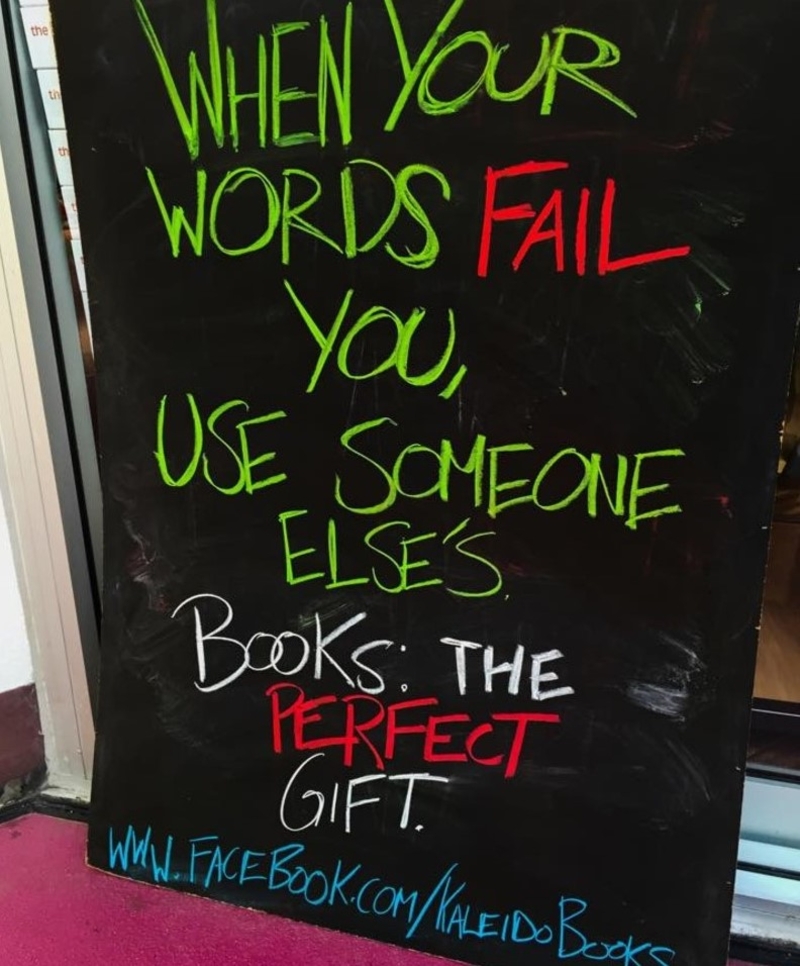 WHEN YOUR
WORDS FAIL
YOU,
USE SOMEONE
ELSE'S.
BOOKS: THE
PERFECT
GIFT.
WWW.FACEBOOK.COM/KALEIDOBOOKS
the
th
th